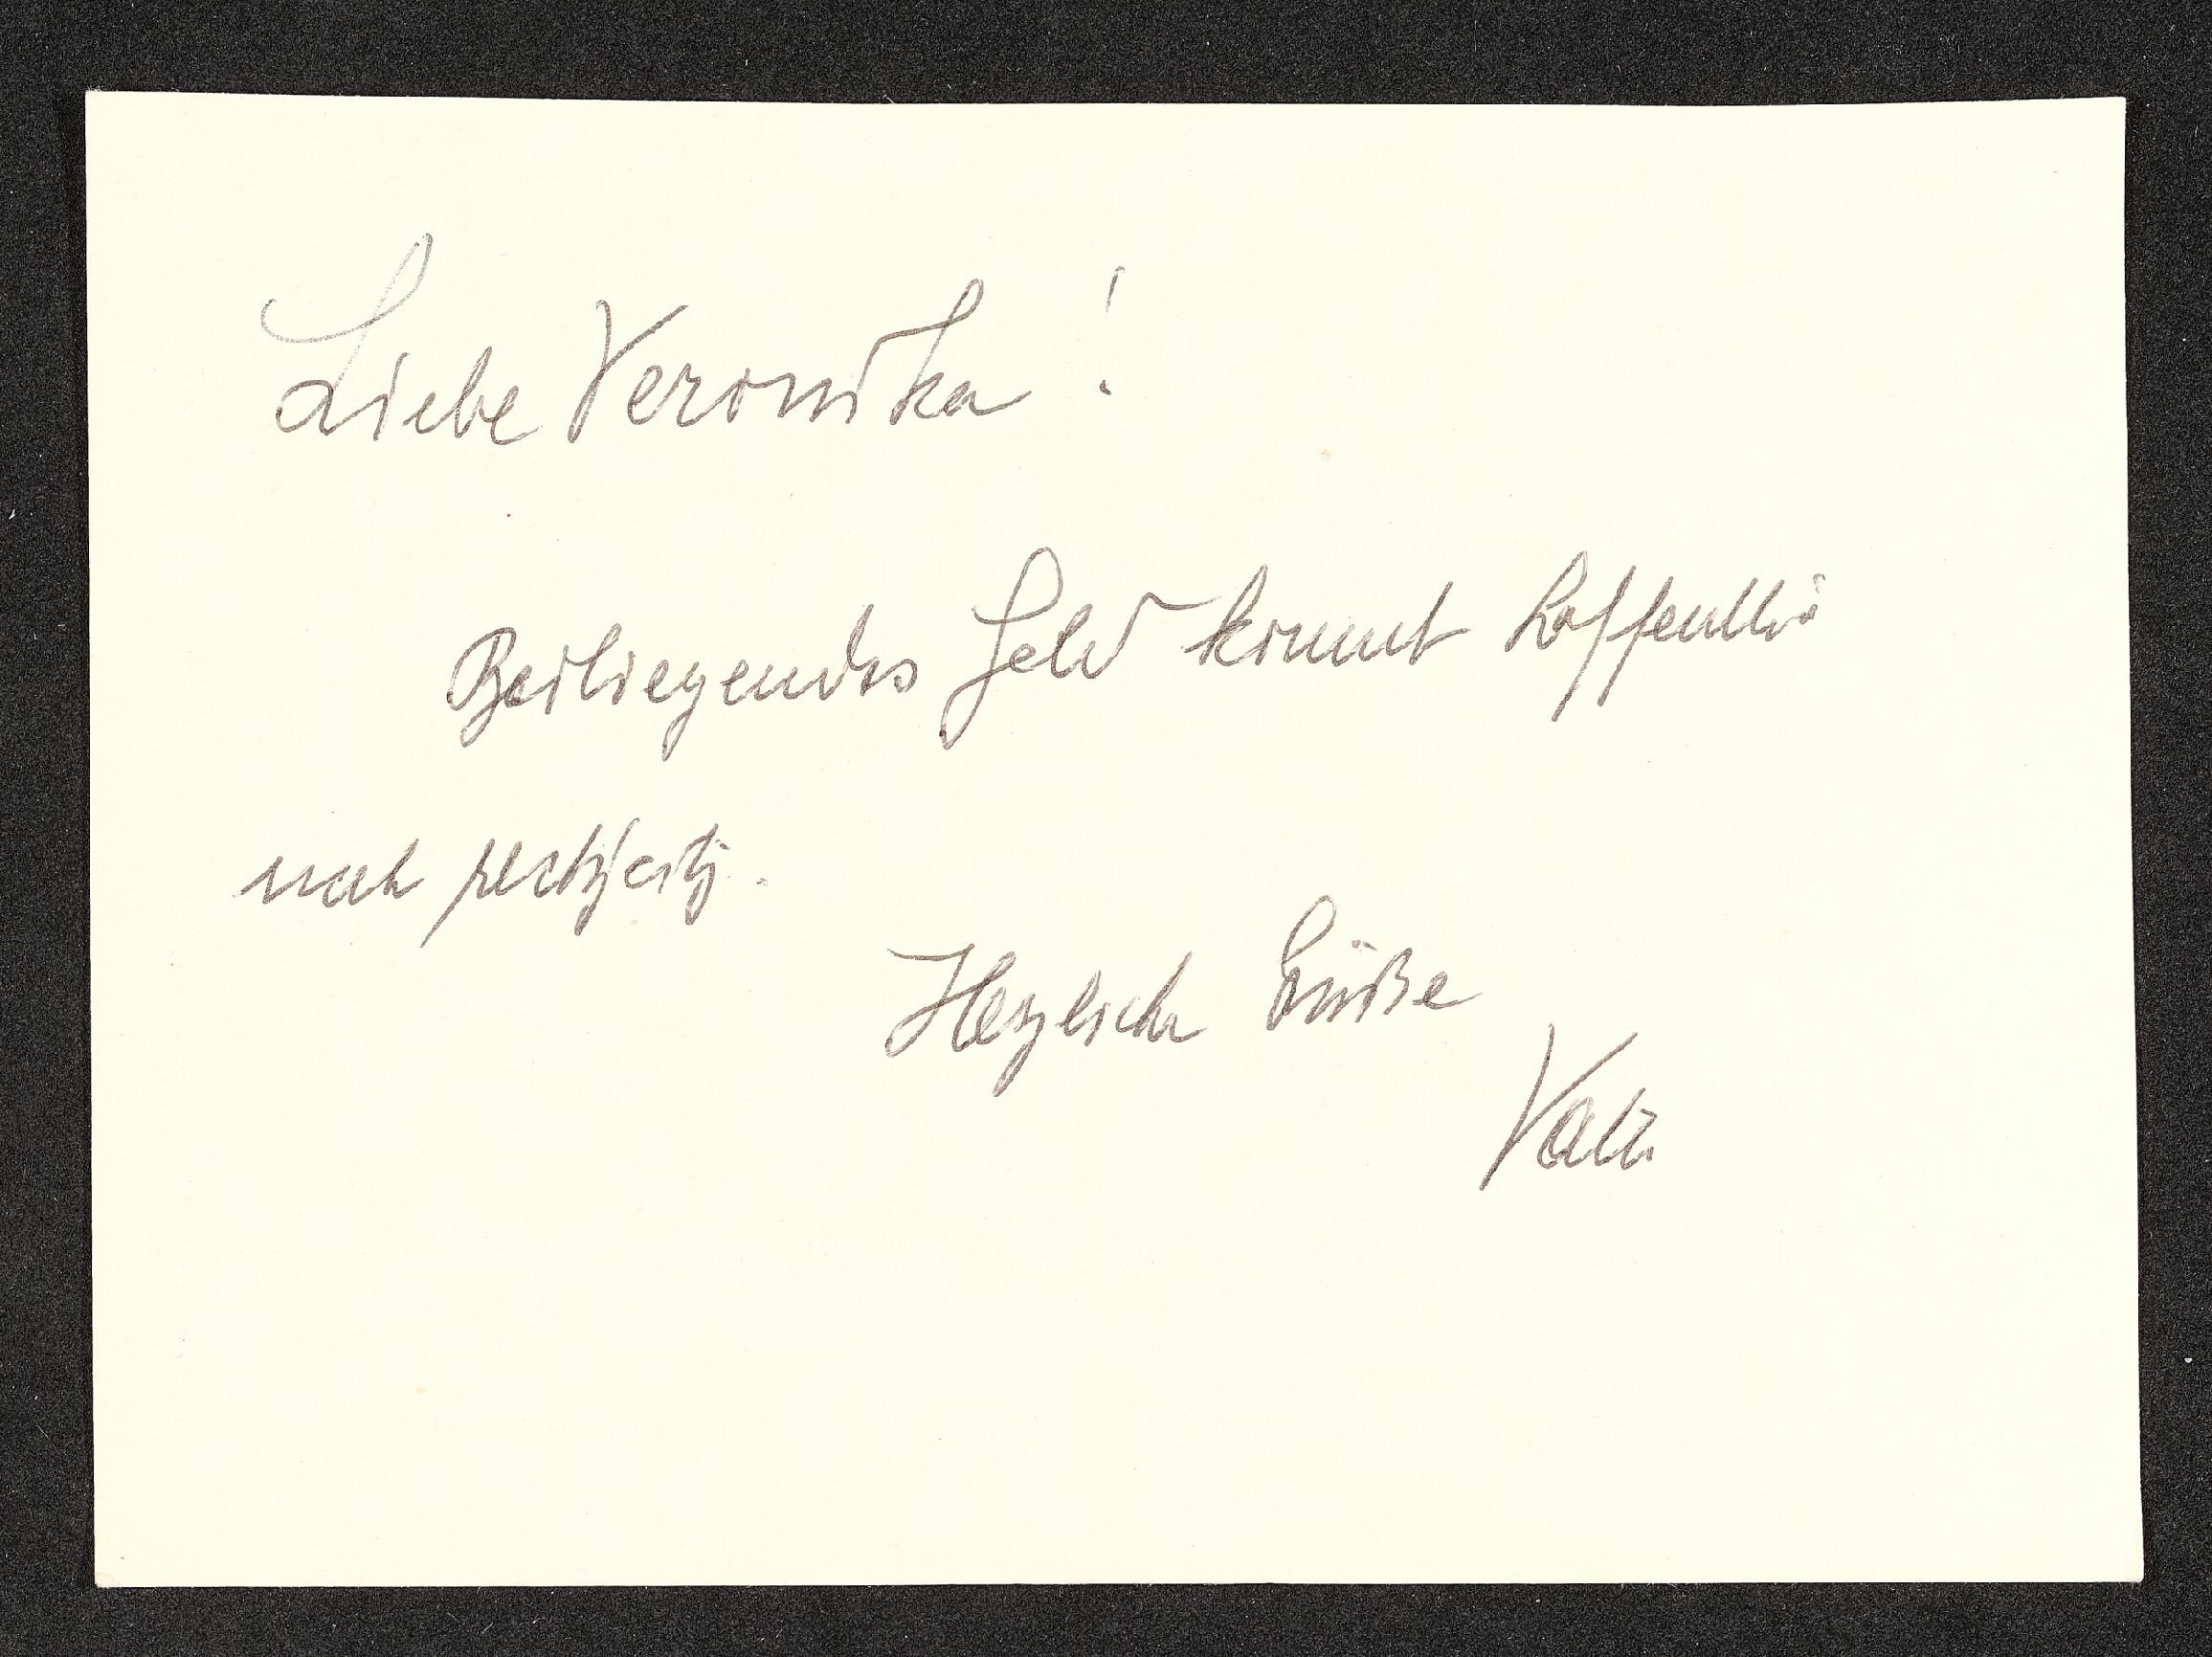 Liebe Veronika!
Beiliegendes Geld kommt hoffentlich
noch rechtzeitig.
Herzliche Grüße